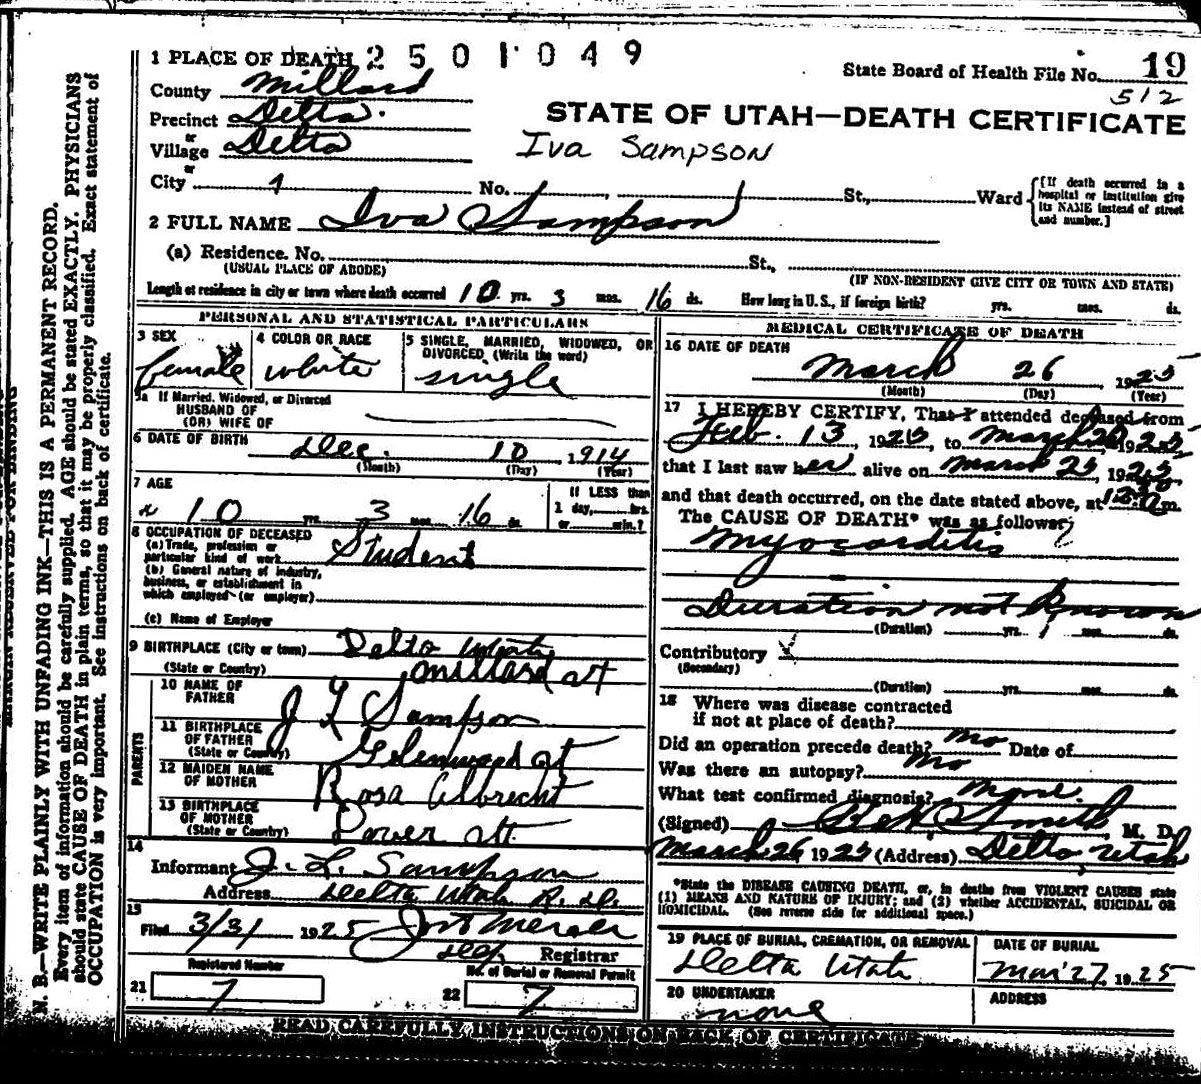 1 PLACE OF DEATH 2501049
State Board of Health File No. 19
512
County Millard
STATE OF UTAH—DEATH CERTIFICATE
Precinct Delta.
or
Village Delta
Iva Sampson
or
City 1 No. St., Ward {[If death occurred in a hospital or institution give its NAME instead of street and number.]
2 FULL NAME Iva Sampson
(a) Residence. No. St.,
(USUAL PLACE OF ABODE) (IF NON-RESIDENT GIVE CITY OR TOWN AND STATE)
Length of residence in city or town where death occurred 10 yrs. 3 mos. 16 ds. How long in U. S., if foreign birth? yrs. mos. ds.
PERSONAL AND STATISTICAL PARTICULARS
3 SEX
female
4 COLOR OR RACE
white
5 SINGLE, MARRIED, WIDOWED, OR DIVORCED, (Write the word)
single
5a If Married, Widowed, or Divorced
HUSBAND OF
(OR) WIFE OF
6 DATE OF BIRTH Dec. 10, 1914
(Month) (Day) (Year)
7 AGE
10 yrs. 3 mos. 16 ds.
If LESS than
1 day, hrs.
or min.?
8 OCCUPATION OF DECEASED
(a) Trade, profession or
particular kind of work Student
(b) General nature of industry,
business, or establishment in
which employed (or employer)
(c) Name of Employer
9 BIRTHPLACE (City or town) Delta Utah
(State or Country) Millard Ut
PARENTS
10 NAME OF
FATHER J L Sampson
11 BIRTHPLACE
OF FATHER
(State or Country) Glenwood Ut
12 MAIDEN NAME
OF MOTHER Rosa Albrecht
13 BIRTHPLACE
OF MOTHER
(State or Country)
14
Informant J. L. Sampson
Address Delta Utah R. D.
15
Filed 3/31 1925
Dep. Registrar
Registered Number
21 7
No. of Burial or Removal Permit
22 7
MEDICAL CERTIFICATE OF DEATH
16 DATE OF DEATH
March 26, 1925
(Month) (Day) (Year)
17 I HEREBY CERTIFY, That I attended deceased from
Feb. 13, 1925, to March 26 1925,
that I last saw her alive on March 25, 1925,
and that death occurred, on the date stated above, at m.
The CAUSE OF DEATH* was as follows:
Myocarditis
Duration not known
(Duration) yrs. mos. ds.
Contributory
(Secondary)
(Duration) yrs. mos. ds.
18 Where was disease contracted
if not at place of death?
Did an operation precede death? No Date of
Was there an autopsy? No
What test confirmed diagnosis? None.
(Signed) Smith, M. D.
March 26 1925 (Address) Delta, Utah
*State the DISEASE CAUSING DEATH, or, in deaths from VIOLENT CAUSES state
(1) MEANS AND NATURE OF INJURY; and (2) whether ACCIDENTAL, SUICIDAL OR
HOMICIDAL. (See reverse side for additional space.)
19 PLACE OF BURIAL, CREMATION, OR REMOVAL
Delta Utah
DATE OF BURIAL
Mar 27, 1925
20 UNDERTAKER
none
ADDRESS
READ CAREFULLY INSTRUCTIONS ON BACK OF CERTIFICATE
MARGIN RESERVED FOR BINDING
N. B.—WRITE PLAINLY WITH UNFADING INK—THIS IS A PERMANENT RECORD.
Every item of information should be carefully supplied. AGE should be stated EXACTLY. PHYSICIANS
should state CAUSE OF DEATH in plain terms, so that it may be properly classified. Exact statement of
OCCUPATION is very important. See instructions on back of certificate.